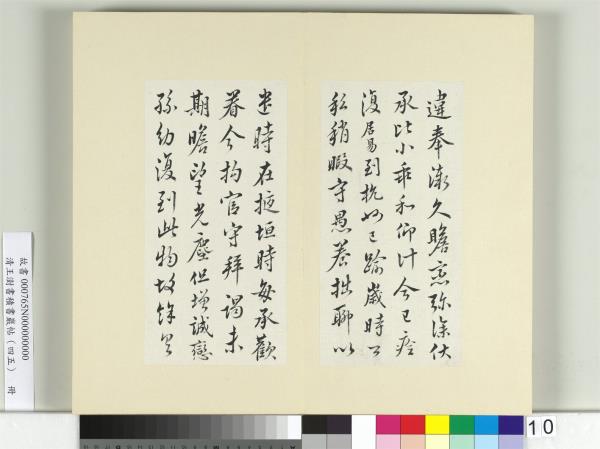 違奉漸久瞻戀彌深伏
承比小乖和仰計今已痊
復居易到杭州已踰歲時公
私稍暇守愚養拙聊以
遣時在掖垣時每承歡
眷今拘官守拜謁未
期瞻望光塵但增誠戀
孫幼復到此物故餘具
故書 000765N000000000
清王澍書積書巖帖（四五） 冊
10